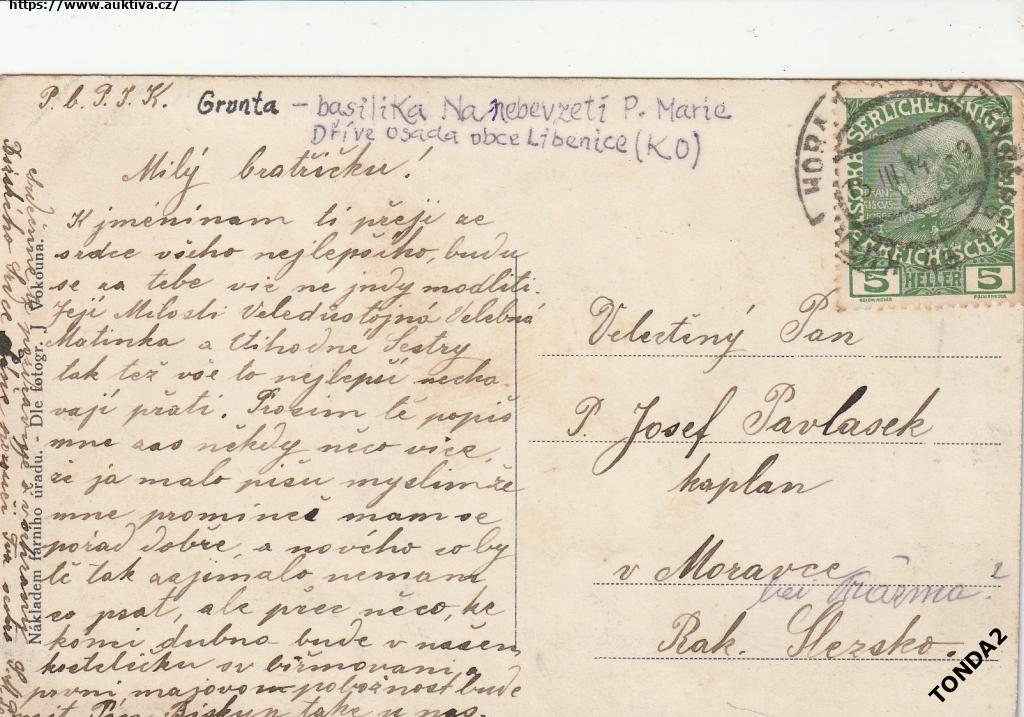 https://www.auktiva.cz/
P. b. P. J. K.
Grunta - basilika Nanebevzetí P. Marie
Dříve osada obce Libenice (KO)
Milý bratříčku!
K jmeninam ti přeji ze
srdce všeho nejlepšího, budu
se za tebe vic ne jndy modliti.
Její Milosti Veledůstojná Velebná
Matinka a Ctihodne Sestry
tak též vše to nejlepší necha-
vají přáti. Prosim tě popiš
mne zas někdy něco vice,
že ja malo pišu myslim že
mne promineš mam se
pořad dobře, a nového co by
tě tak zajimalo, nemam
co psat, ale přec něco, ke
konci dubna bude v našem
kostelíčku sv biřmovani a
prvni majovou pobožnost bude
Pán Biskup take u nas.
Nákladem farního úradu. - Dle fotogr. J Wokouna.
HELLER
5 5
Velectěný Pan
P. Josef Pavlasek
kaplan
v Moravce
bei
Rak. Slezsko.
TONDA2